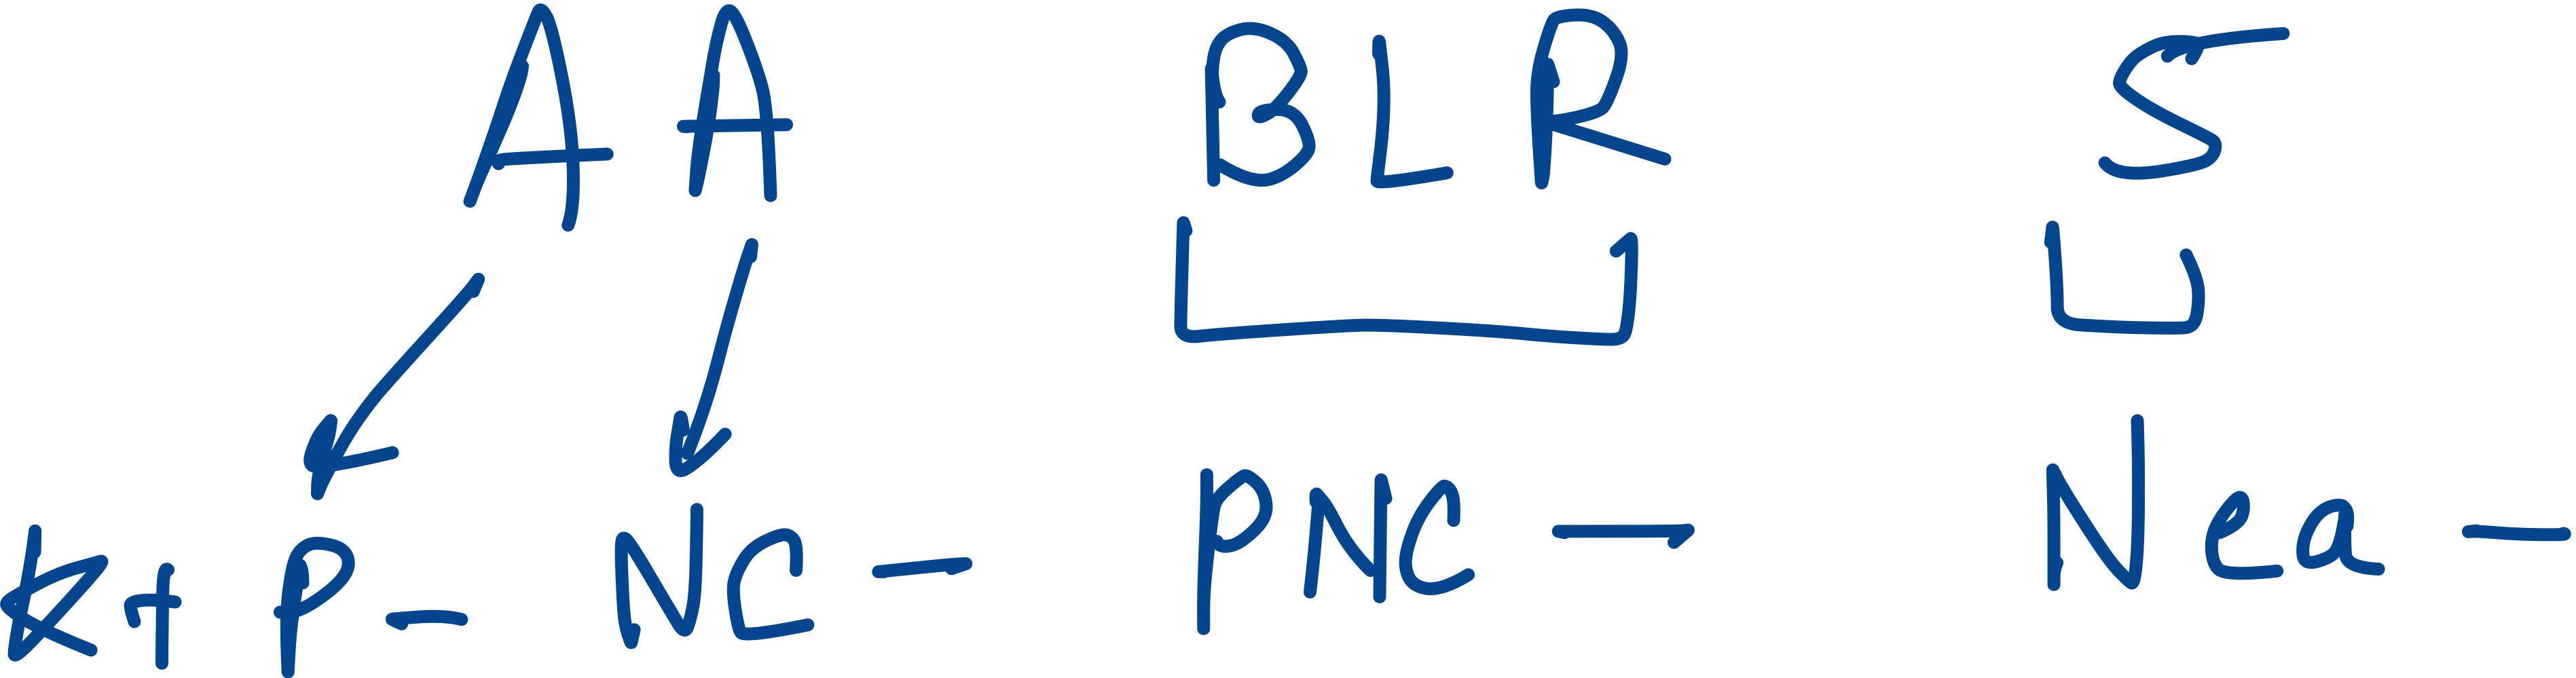 AA BLR S
K+ P- NC- PNC- Nea-